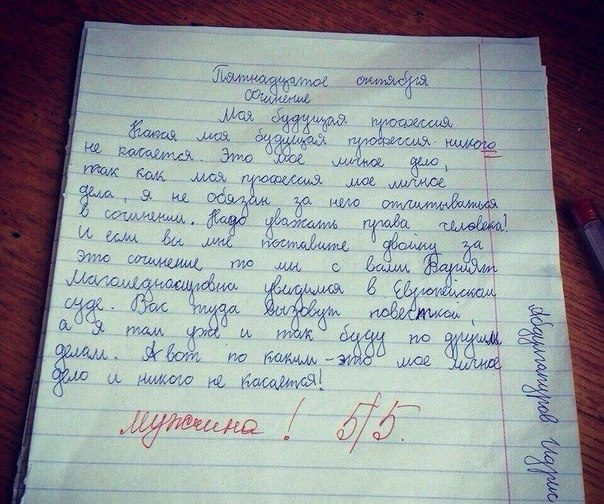 Пятнадцатое октября
Сочинение
Моя будущая профессия
Какая моя будущая профессия никого
не касается. Это мое личное дело,
так как моя профессия мое личное
дела, я не обязан за него отчитываться
в сочинении. Надо уважать права человека!
И если вы мне поставите двойку за
это сочинение то мы с вами Варият
Магомеднасировна увидимся в Европейском
суде. Вас туда вызовут повесткой,
а я там уже и так буду по другим
делам. А вот по каким - это мое личное
дело и никого не касается!
мужчина! 5/5.
Абдулгапуров Идрис